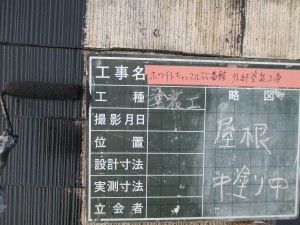 工事名 ホワイトキャッスル55番館 外部塗装工事
工種 塗装工 略図
撮影月日
位置 屋根
設計寸法 中塗り中
実測寸法
立会者